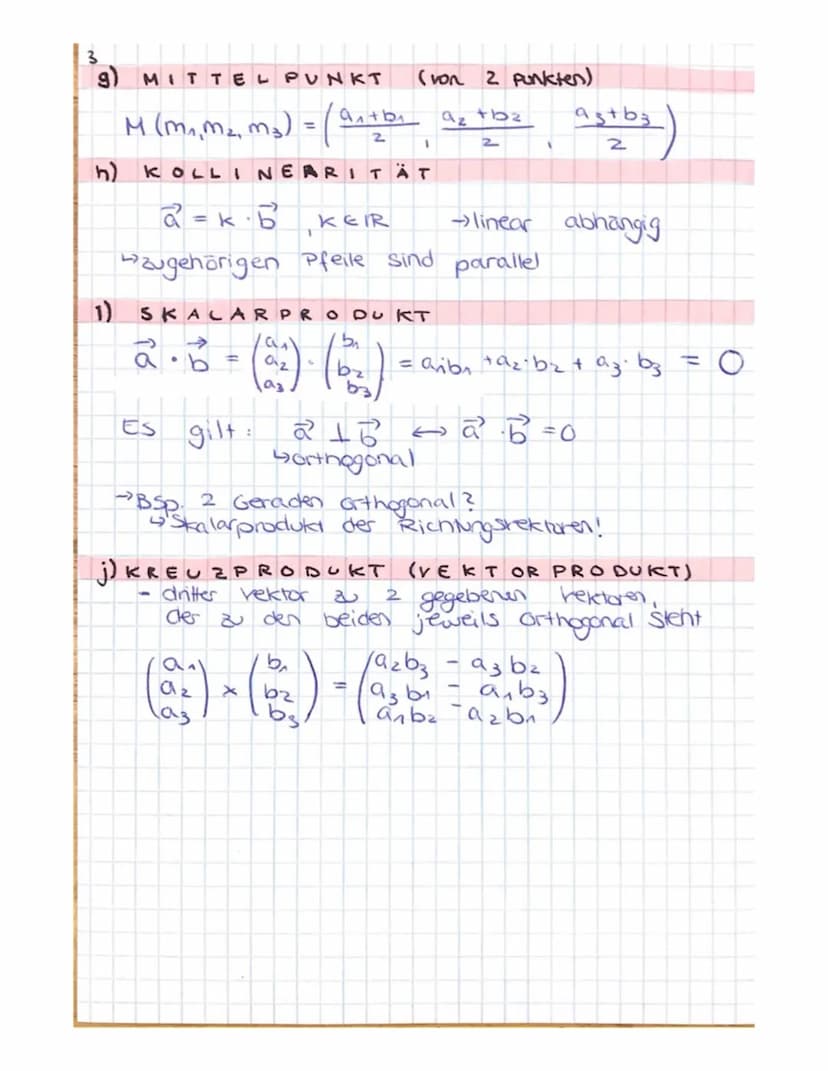 3
g) MITTELPUNKT (von 2 Punkten)
M (m₁, m₂, m₃) = ( (a₁+b₁)/2 , (a₂+b₂)/2 , (a₃+b₃)/2 )
h) KOLLINEARITÄT
a⃗ = k · b⃗ , k ∈ ℝ → linear abhängig
↳ zugehörigen Pfeile sind parallel
i) SKALARPRODUKT
a⃗ · b⃗ = (a₁ a₂ a₃) · (b₁ b₂ b₃) = a₁·b₁ + a₂·b₂ + a₃·b₃ = 0
Es gilt: a⃗ ⊥ b⃗ ↔ a⃗ · b⃗ = 0
↳ orthogonal
→ Bsp. 2 Geraden orthogonal?
↳ Skalarprodukt der Richtungsvektoren!
j) KREUZPRODUKT (VEKTORPRODUKT)
- dritter Vektor zu 2 gegebenen Vektoren,
der zu den beiden jeweils orthogonal steht
(a₁ a₂ a₃) × (b₁ b₂ b₃) = (a₂b₃ - a₃b₂ a₃b₁ - a₁b₃ a₁b₂ - a₂b₁)